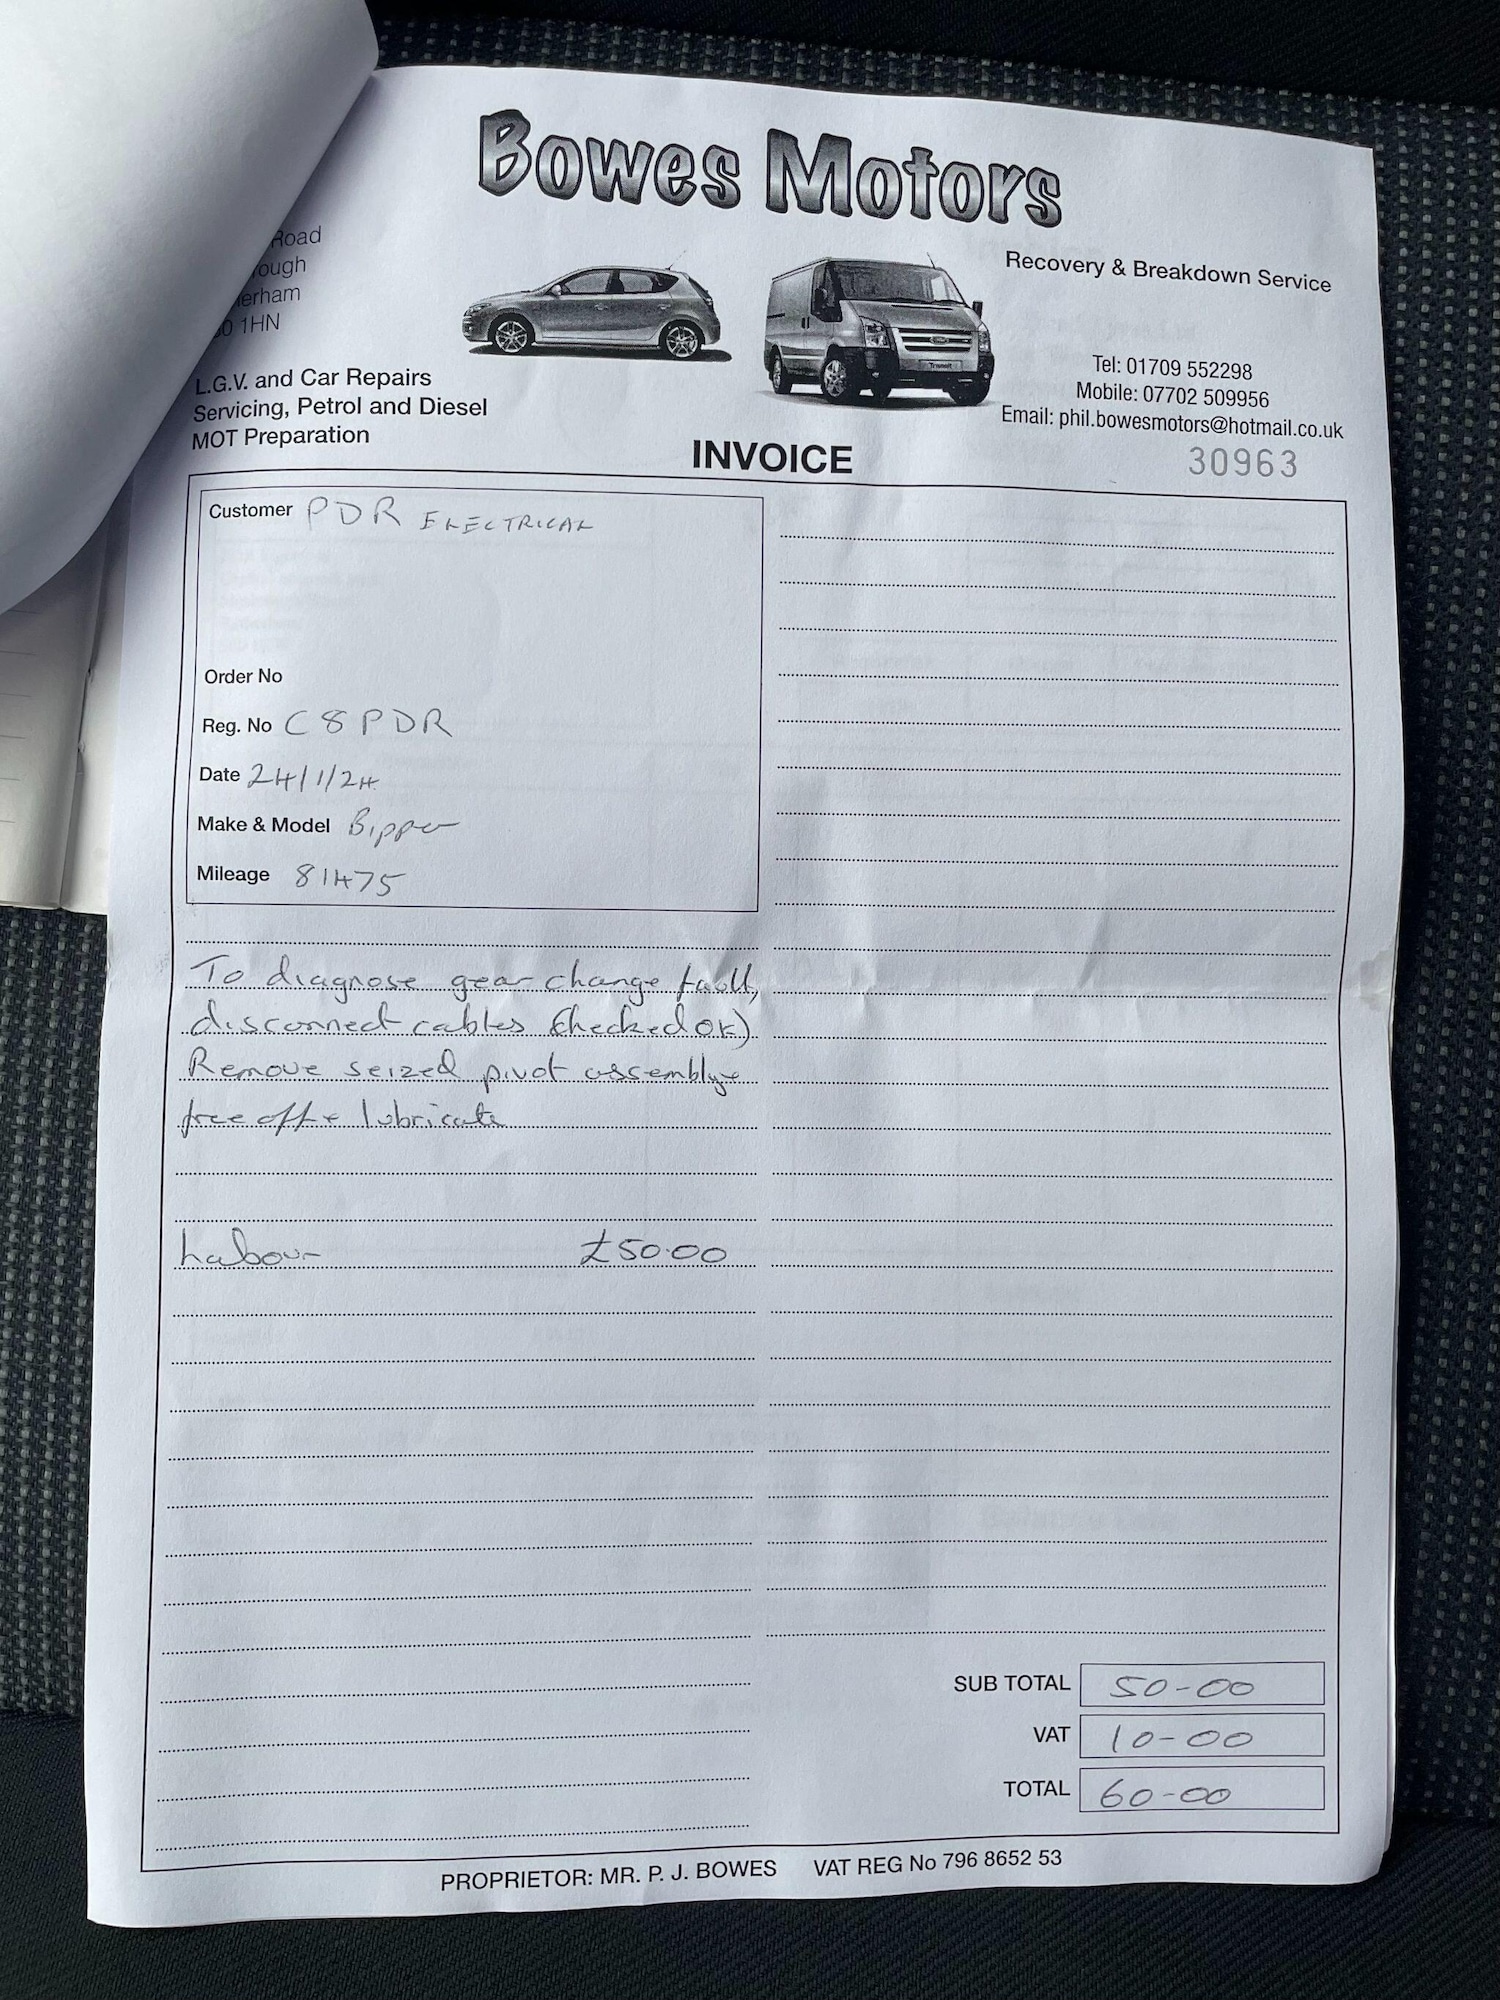 Bowes Motors
Road
ough
erham
0 1HN
Recovery & Breakdown Service
L.G.V. and Car Repairs
Servicing, Petrol and Diesel
MOT Preparation
Transit
Tel: 01709 552298
Mobile: 07702 509956
Email: phil.bowesmotors@hotmail.co.uk
INVOICE
30963
Customer PDR ELECTRICAL
Order No
Reg. No C8PDR
Date 24/1/24
Make & Model Bipper
Mileage 81475
To diagnose gear change fault,
disconnect cables (checked ok)
Remove seized pivot assembly +
free off + lubricate
Labour £50.00
SUB TOTAL 50-00
VAT 10-00
TOTAL 60-00
PROPRIETOR: MR. P. J. BOWES VAT REG No 796 8652 53